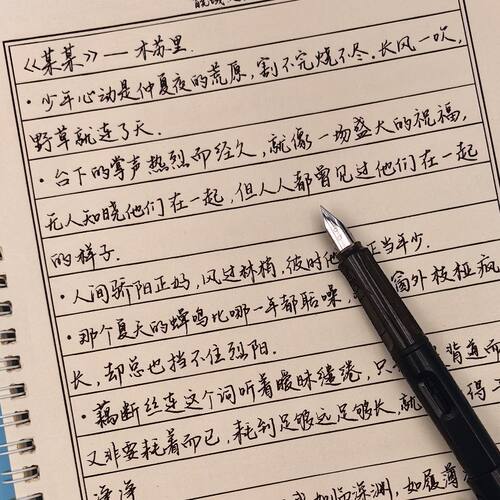 《某某》——木苏里.
·少年心动是仲夏夜的荒原,割不完烧不尽.长风一吹,
野草就连了天.
·台下的掌声热烈而经久,就像一场盛大的祝福,
无人知晓他们在一起,但人人都曾见过他们在一起
的样子.
·人间骄阳正好,风过林梢,彼时他 正当年少.
·那个夏天的蝉鸣比哪一年都聒噪, 窗外枝桠疯
长,却总也挡不住烈阳.
·藕断丝连这个词听着暧昧缱绻,只 背道而
又非要耗着而已,耗到足够远足够长,就 得
如临深渊,如履薄